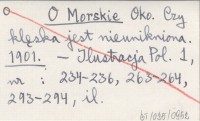 O Morskie Oko. Czy
klęska jest nieunikniona.
1901. — Ilustracja Pol. 1,
nr : 234-236, 263-264,
293-294, il.